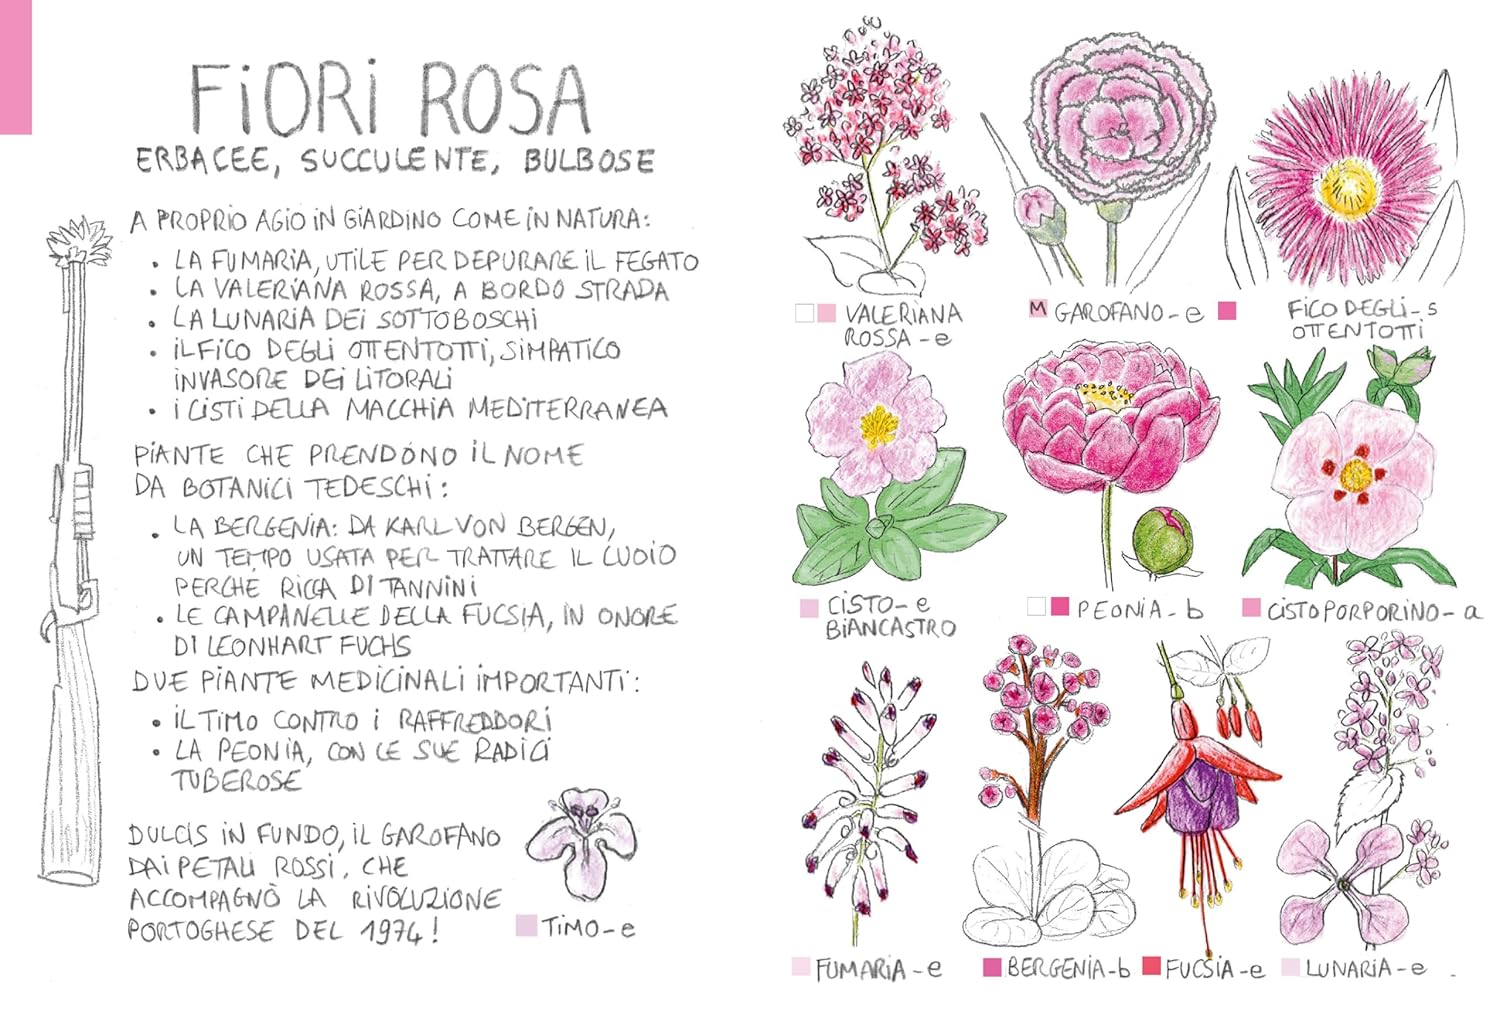 FIORI ROSA
ERBACEE, SUCCULENTE, BULBOSE
A PROPRIO AGIO IN GIARDINO COME IN NATURA:
• LA FUMARIA, UTILE PER DEPURARE IL FEGATO
• LA VALERIANA ROSSA, A BORDO STRADA
• LA LUNARIA DEI SOTTOBOSCHI
• IL FICO DEGLI OTTENTOTTI, SIMPATICO
INVASORE DEI LITORALI
• I CISTI DELLA MACCHIA MEDITERRANEA
PIANTE CHE PRENDONO IL NOME
DA BOTANICI TEDESCHI:
• LA BERGENIA: DA KARL VON BERGEN,
UN TEMPO USATA PER TRATTARE IL CUOIO
PERCHÉ RICCA DI TANNINI
• LE CAMPANELLE DELLA FUCSIA, IN ONORE
DI LEONHART FUCHS
DUE PIANTE MEDICINALI IMPORTANTI:
• IL TIMO CONTRO I RAFFREDDORI
• LA PEONIA, CON LE SUE RADICI
TUBEROSE
DULCIS IN FUNDO, IL GAROFANO
DAI PETALI ROSSI, CHE
ACCOMPAGNÒ LA RIVOLUZIONE
PORTOGHESE DEL 1974!
TIMO-e
VALERIANA
ROSSA-e
M GAROFANO-e
FICO DEGLI-s
OTTENTOTTI
CISTO-e
BIANCASTRO
PEONIA-b
CISTO PORPORINO-a
FUMARIA-e
BERGENIA-b
FUCSIA-e
LUNARIA-e